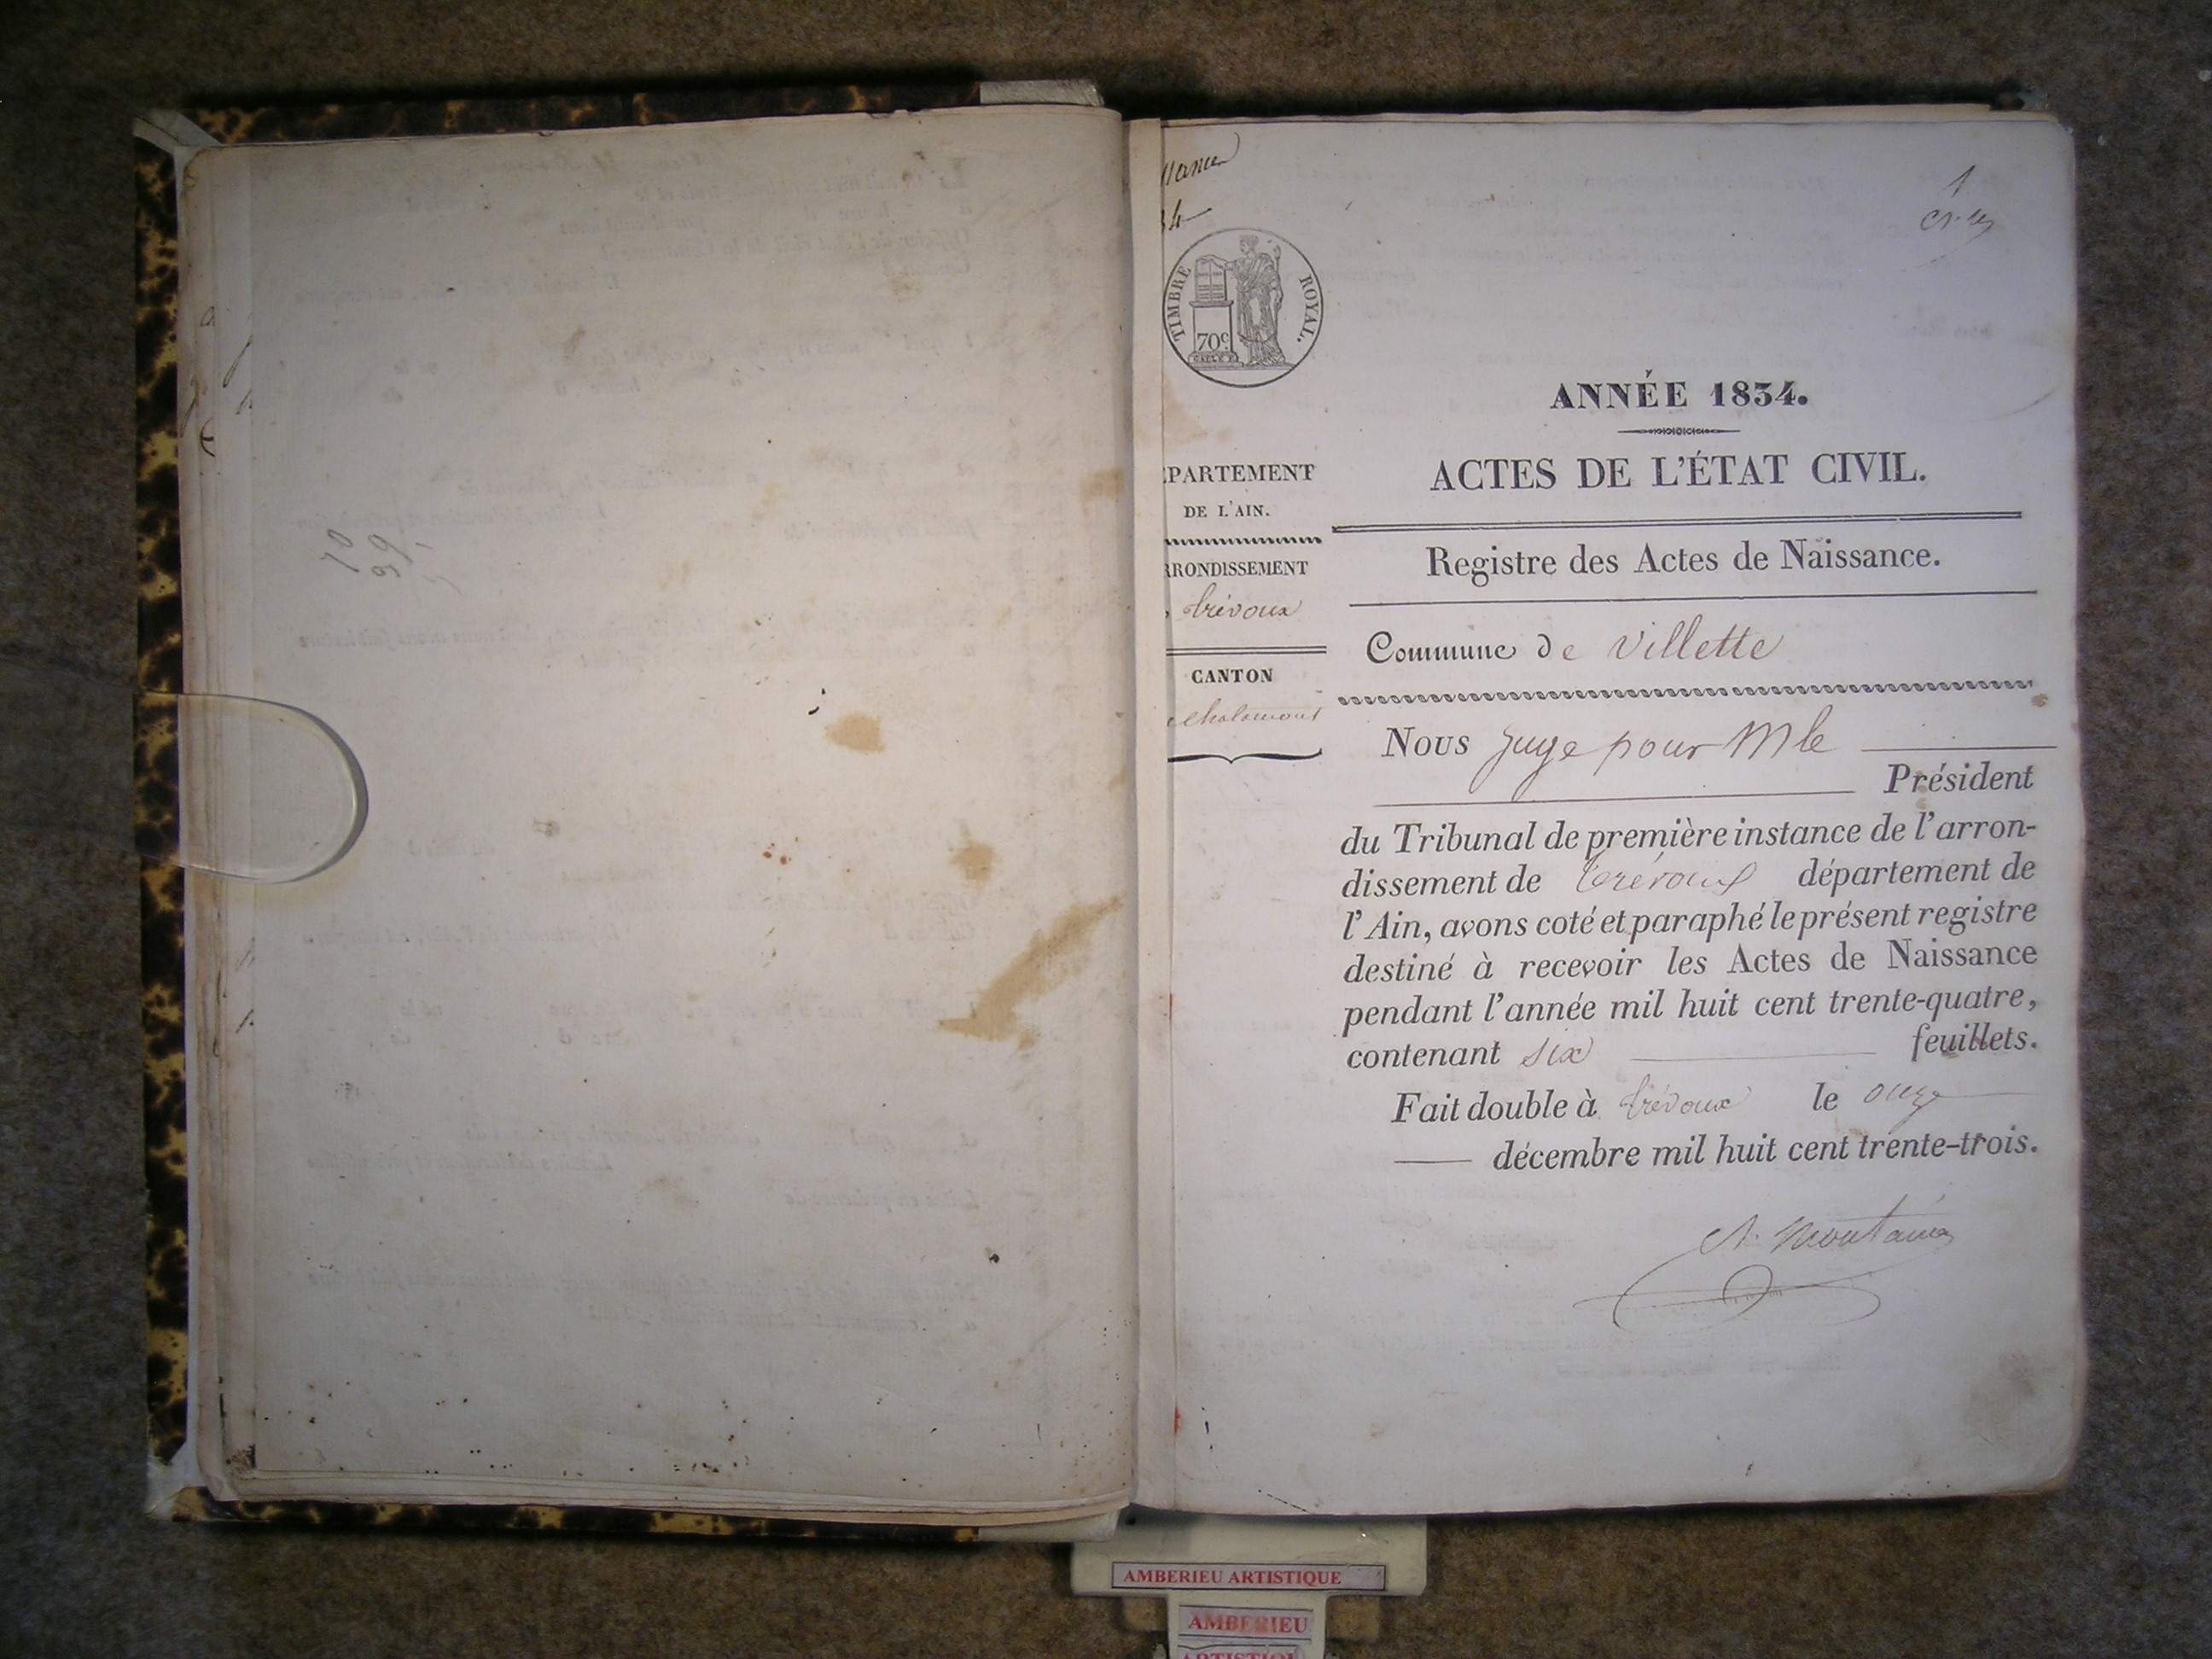 1
TIMBRE ROYAL.
70 c.
ANNÉE 1834.
ACTES DE L'ÉTAT CIVIL.
PARTEMENT
DE L'AIN.
Registre des Actes de Naissance.
RRONDISSEMENT
trévoux
Commune de Villette
CANTON
chalamont
Nous Juge pour Mle
Président
du Tribunal de première instance de l'arron-
dissement de trévoux département de
l'Ain, avons coté et paraphé le présent registre
destiné à recevoir les Actes de Naissance
pendant l'année mil huit cent trente-quatre,
contenant six feuillets.
Fait double à trévoux le onze
décembre mil huit cent trente-trois.
AMBERIEU ARTISTIQUE
AMBERIEU